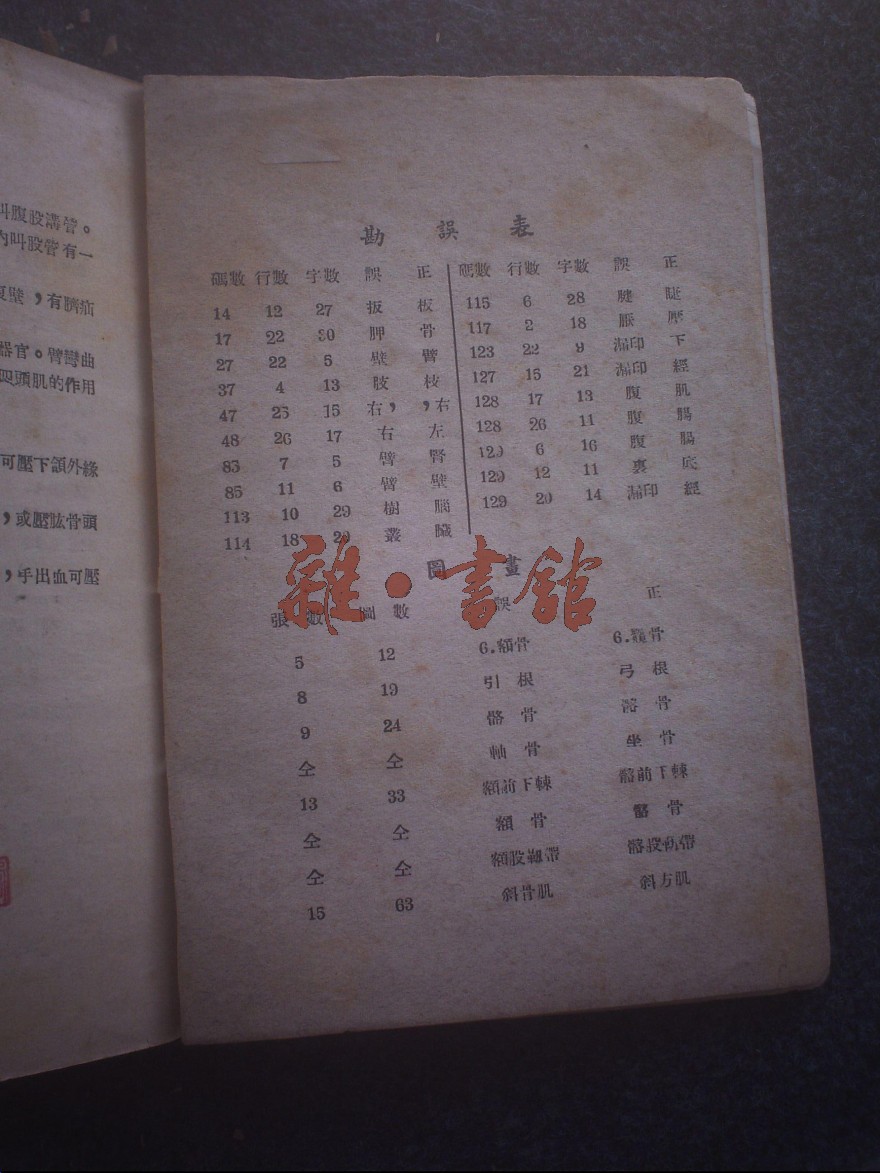 叫腹股溝管。
內叫股管有一
腹壁，有臍疝
器官。臂彎曲
四頭肌的作用
可壓下頜外緣
，或壓肱骨頭
，手出血可壓
勘誤表
碼數 行數 字數 誤 正
14 12 27 扳 板
17 22 30 胛 骨
27 22 5 壁 臂
37 4 13 肢 枝
47 25 15 右， ，右
48 26 17 右 左
83 7 5 臂 腎
85 11 6 臂 壁
113 10 29 樹 腦
114 18 20 叢 臟
碼數 行數 字數 誤 正
115 6 28
117 2 18 脹 壓
123 22 9 漏印 下
127 15 21 漏印 經
128 17 13 腹 肌
128 26 11 腹 腸
129 6 16 腹 腸
129 12 11 裏 底
129 20 14 漏印 經
圖畫
張數 圖數 誤 正
5 12 6.額骨 6.顴骨
8 19 引根 弓根
9 24 骼骨 髂骨
仝 仝 軸骨 坐骨
13 33 額前下棘 髂前下棘
仝 仝 額骨 髂骨
仝 仝 額股韌帶 髂股韌帶
15 63 斜骨肌 斜方肌
雜·書館